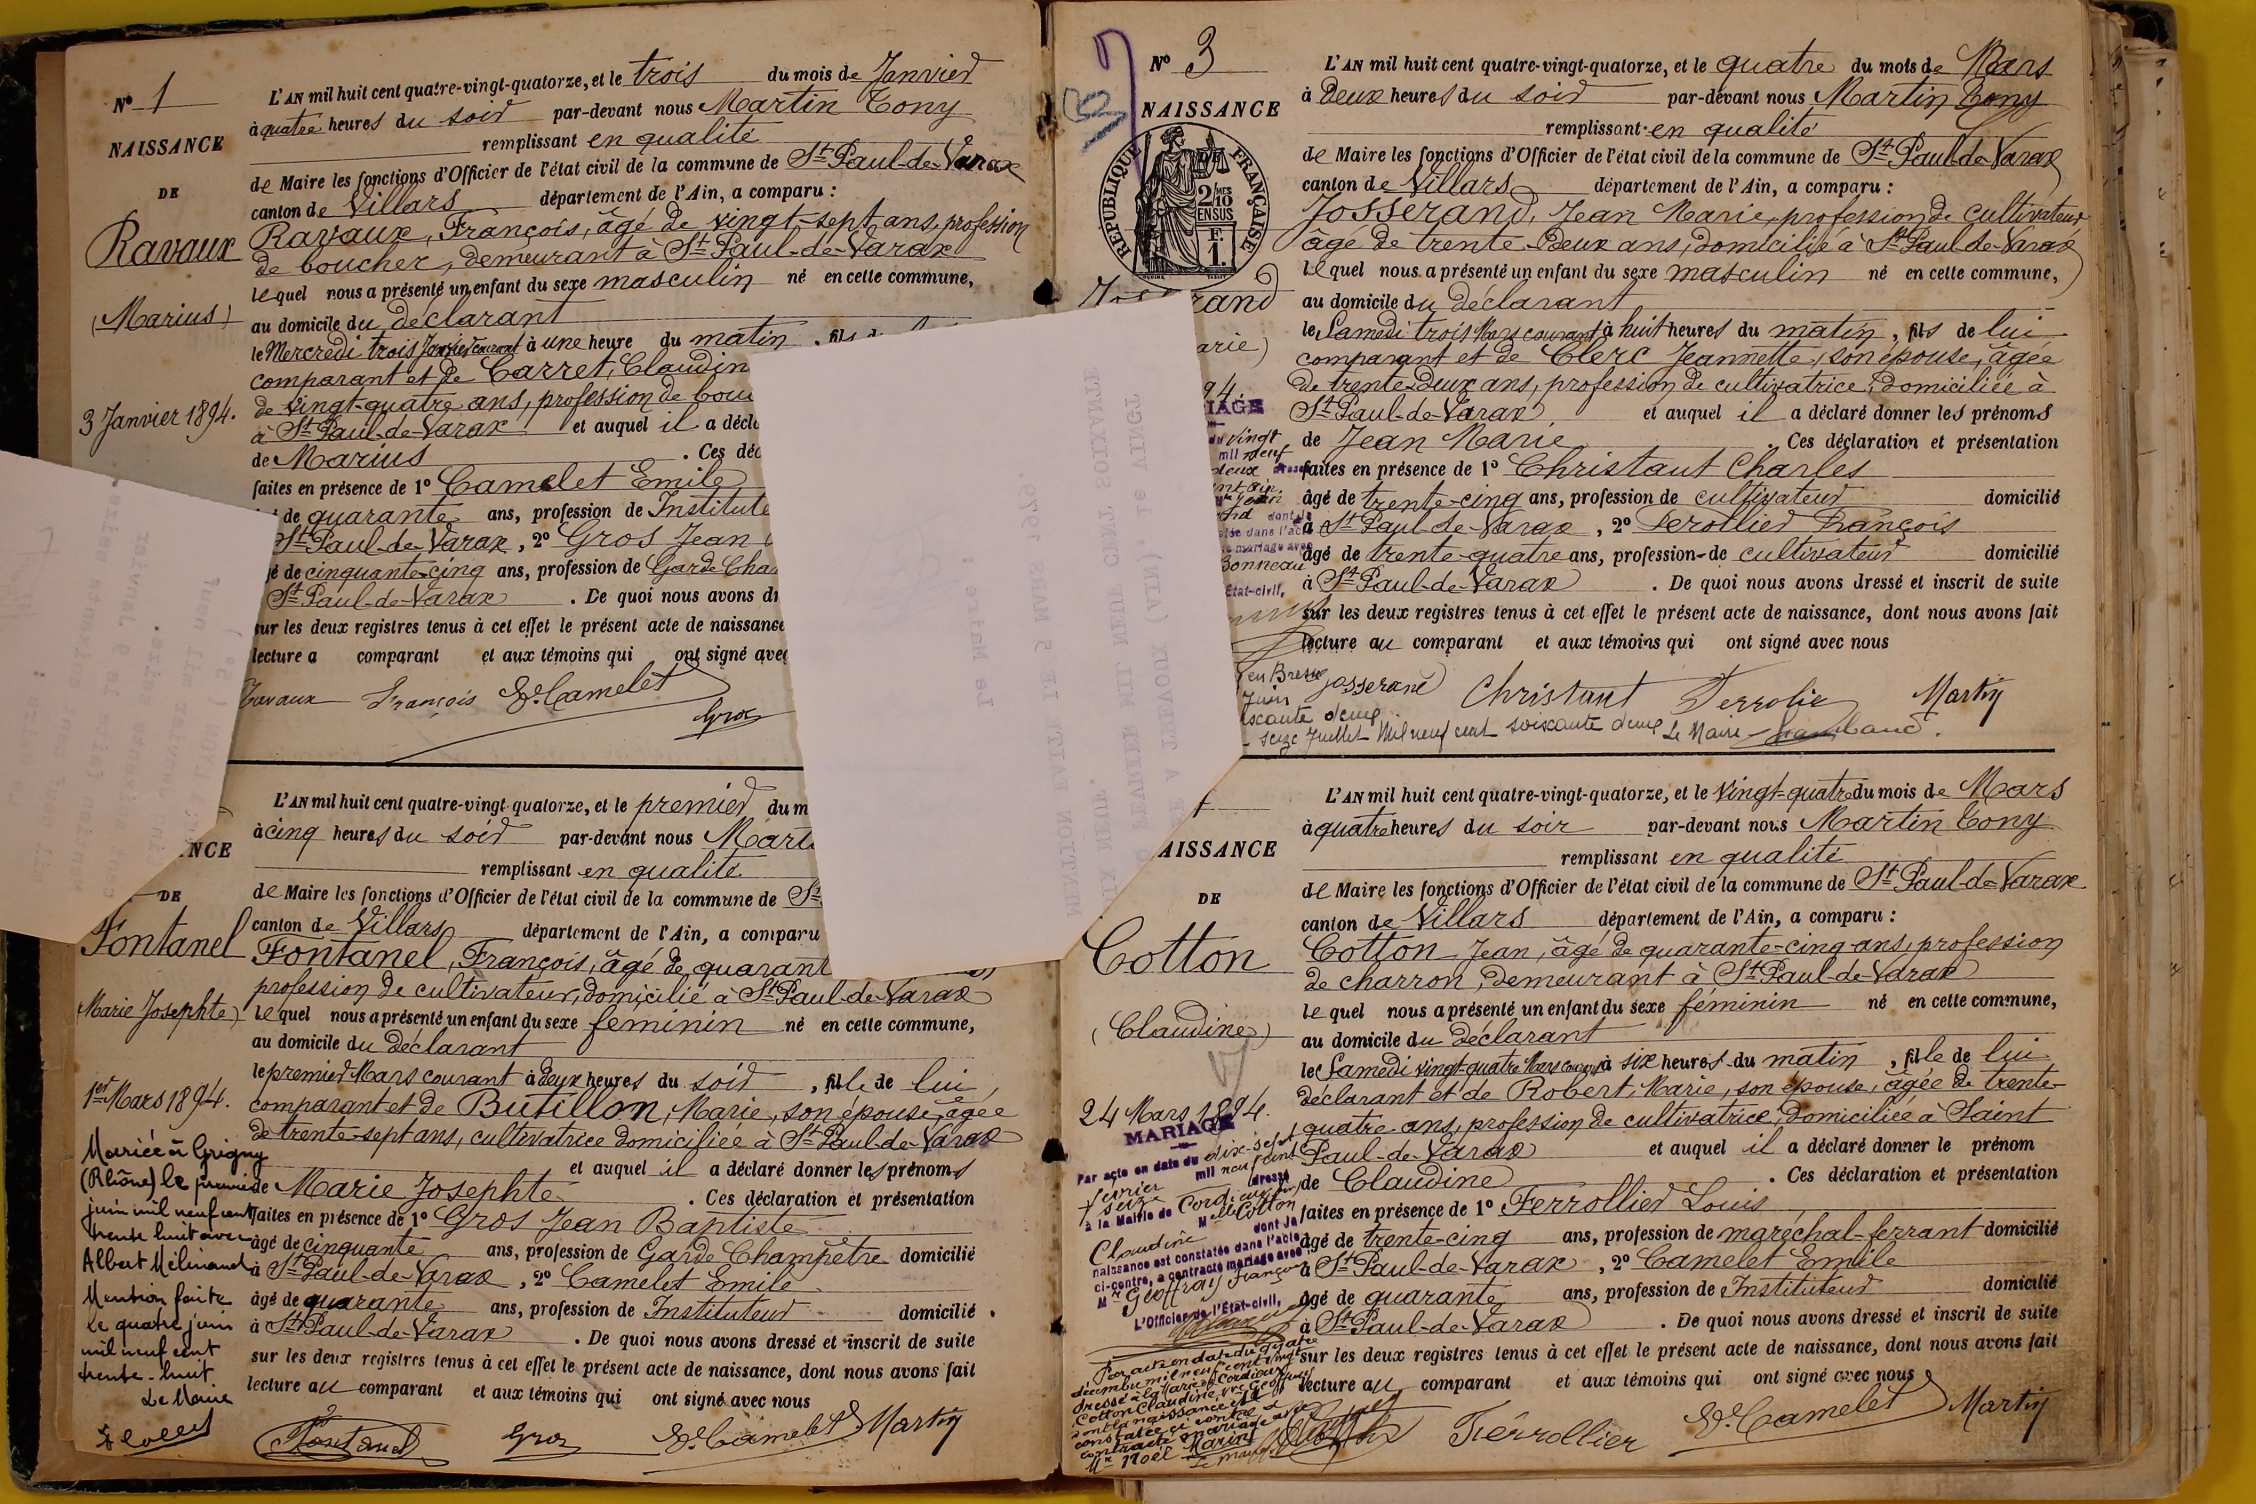 Nº 1
NAISSANCE
DE
Ravaux
(Marius)
3 Janvier 1894.
L'AN mil huit cent quatre-vingt-quatorze, et le trois du mois de Janvier
à quatre heures du soir par-devant nous Martin Tony
remplissant en qualité
de Maire les fonctions d'Officier de l'état civil de la commune de St Paul-de-Varax
canton de Villars département de l'Ain, a comparu :
Ravaux, François, âgé de vingt-sept ans, profession
de boucher, demeurant à St Paul-de-Varax
lequel nous a présenté un enfant du sexe masculin né en cette commune,
au domicile du déclarant
le Mercredi trois Janvier courant à une heure du matin, fils
comparant et de Carret, Claudin
de vingt-quatre ans, profession de bou
à St Paul-de-Varax et auquel il a décl
de Marius . Ces déc
faites en présence de 1º Camelet Emile
de quarante ans, profession de Institute
St Paul-de-Varax, 2º Gros Jean
é de cinquante-cinq ans, profession de Garde Cha
St Paul-de-Varax . De quoi nous avons d
sur les deux registres tenus à cet effet le présent acte de naissance
lecture a comparant et aux témoins qui ont signé avec
Ravaux François E. Camelet
Gros
NCE
DE
Fontanel
(Marie Josephte)
1er Mars 1894.
Mariée à Grigny
(Rhône) le premier
juin mil neuf cent
trente huit avec
Albert Mélinand
Mention faite
le quatre juin
mil neuf cent
trente-huit
Le Maire
L'AN mil huit cent quatre-vingt-quatorze, et le premier du m
à cinq heures du soir par-devant nous Mart
remplissant en qualité
de Maire les fonctions d'Officier de l'état civil de la commune de St
canton de Villars département de l'Ain, a comparu
Fontanel, François, âgé de quarant
profession de cultivateur, domicilié à St Paul-de-Varax
lequel nous a présenté un enfant du sexe féminin né en cette commune,
au domicile du déclarant
le premier Mars courant à deux heures du soir, fille de lui
comparant et de Butillon, Marie, son épouse, âgée
de trente-sept ans, cultivatrice domiciliée à St Paul-de-Varax
et auquel il a déclaré donner les prénoms
de Marie Josephte . Ces déclaration et présentation
faites en présence de 1º Gros Jean Baptiste
âgé de cinquante ans, profession de Garde Champêtre domicilié
à St Paul-de-Varax, 2º Camelet Emile
âgé de quarante ans, profession de Instituteur domicilié
à St Paul-de-Varax . De quoi nous avons dressé et inscrit de suite
sur les deux registres tenus à cet effet le présent acte de naissance, dont nous avons fait
lecture au comparant et aux témoins qui ont signé avec nous
Fontanel Gros E. Camelet Martin
Nº 3
NAISSANCE
RÉPUBLIQUE FRANÇAISE
2/10 MES
EN SUS
F.
1.
rand
arie)
94.
IAGE
du vingt
mil neuf
deux
dont la
mariage avec
Bonneau
État-civil,
L'AN mil huit cent quatre-vingt-quatorze, et le quatre du mois de Mars
à Deux heures du soir par-devant nous Martin Tony
remplissant en qualité
de Maire les fonctions d'Officier de l'état civil de la commune de St Paul-de-Varax
canton de Villars département de l'Ain, a comparu :
Josserand, Jean Marie, profession de cultivateur
âgé de trente-deux ans, domicilié à St Paul-de-Varax
lequel nous a présenté un enfant du sexe masculin né en cette commune,
au domicile du déclarant
le Samedi trois Mars courant à huit heures du matin, fils de lui
comparant et de Clerc Jeannette, son épouse, âgée
de trente-deux ans, profession de cultivatrice, domiciliée à
St Paul-de-Varax et auquel il a déclaré donner les prénoms
de Jean Marie . Ces déclaration et présentation
faites en présence de 1º Christaut Charles
âgé de trente-cinq ans, profession de cultivateur domicilié
à St Paul-de-Varax, 2º Ferollier François
âgé de trente-quatre ans, profession de cultivateur domicilié
à St Paul-de-Varax . De quoi nous avons dressé et inscrit de suite
sur les deux registres tenus à cet effet le présent acte de naissance, dont nous avons fait
lecture au comparant et aux témoins qui ont signé avec nous
en Bresse Josserand Christaut Martin
Juin
soixante deux
seize Juillet Mil neuf cent soixante deux Le Maire
AISSANCE
DE
Cotton
(Claudine)
24 Mars 1894.
MARIAGE
Par acte en date du dix-sept
février mil neuf cent
seize dressé
à la Mairie de Cordieux
Melle Cotton
Claudine dont la
naissance est constatée dans l'acte
ci-contre, a contracté mariage avec
Mr Geoffray François
L'Officier de l'État-civil,
Par acte en date du quatre
décembre mil neuf cent vingt
dressé à la Mairie Cordieux
Cotton Claudine Vve Geoffray
dont la naissance est
constatée ci-contre a
contracté mariage avec
Mr Noël Marin
L'AN mil huit cent quatre-vingt-quatorze, et le Vingt-quatre du mois de Mars
à quatre heures du soir par-devant nous Martin Tony
remplissant en qualité
de Maire les fonctions d'Officier de l'état civil de la commune de St Paul-de-Varax
canton de Villars département de l'Ain, a comparu :
Cotton Jean, âgé de quarante-cinq ans, profession
de charron, demeurant à St Paul-de-Varax
lequel nous a présenté un enfant du sexe féminin né en cette commune,
au domicile du déclarant
le Samedi vingt-quatre Mars courant à six heures du matin, fille de lui
déclarant et de Robert, Marie, son épouse, âgée de trente-
quatre ans, profession de cultivatrice, domiciliée à Saint
Paul-de-Varax et auquel il a déclaré donner le prénom
de Claudine . Ces déclaration et présentation
faites en présence de 1º Ferrollier Louis
âgé de trente-cinq ans, profession de maréchal-ferrant domicilié
à St Paul-de-Varax, 2º Camelet Emile
âgé de quarante ans, profession de Instituteur domicilié
à St Paul-de-Varax . De quoi nous avons dressé et inscrit de suite
sur les deux registres tenus à cet effet le présent acte de naissance, dont nous avons fait
lecture au comparant et aux témoins qui ont signé avec nous
Cotton Férrollier E. Camelet Martin